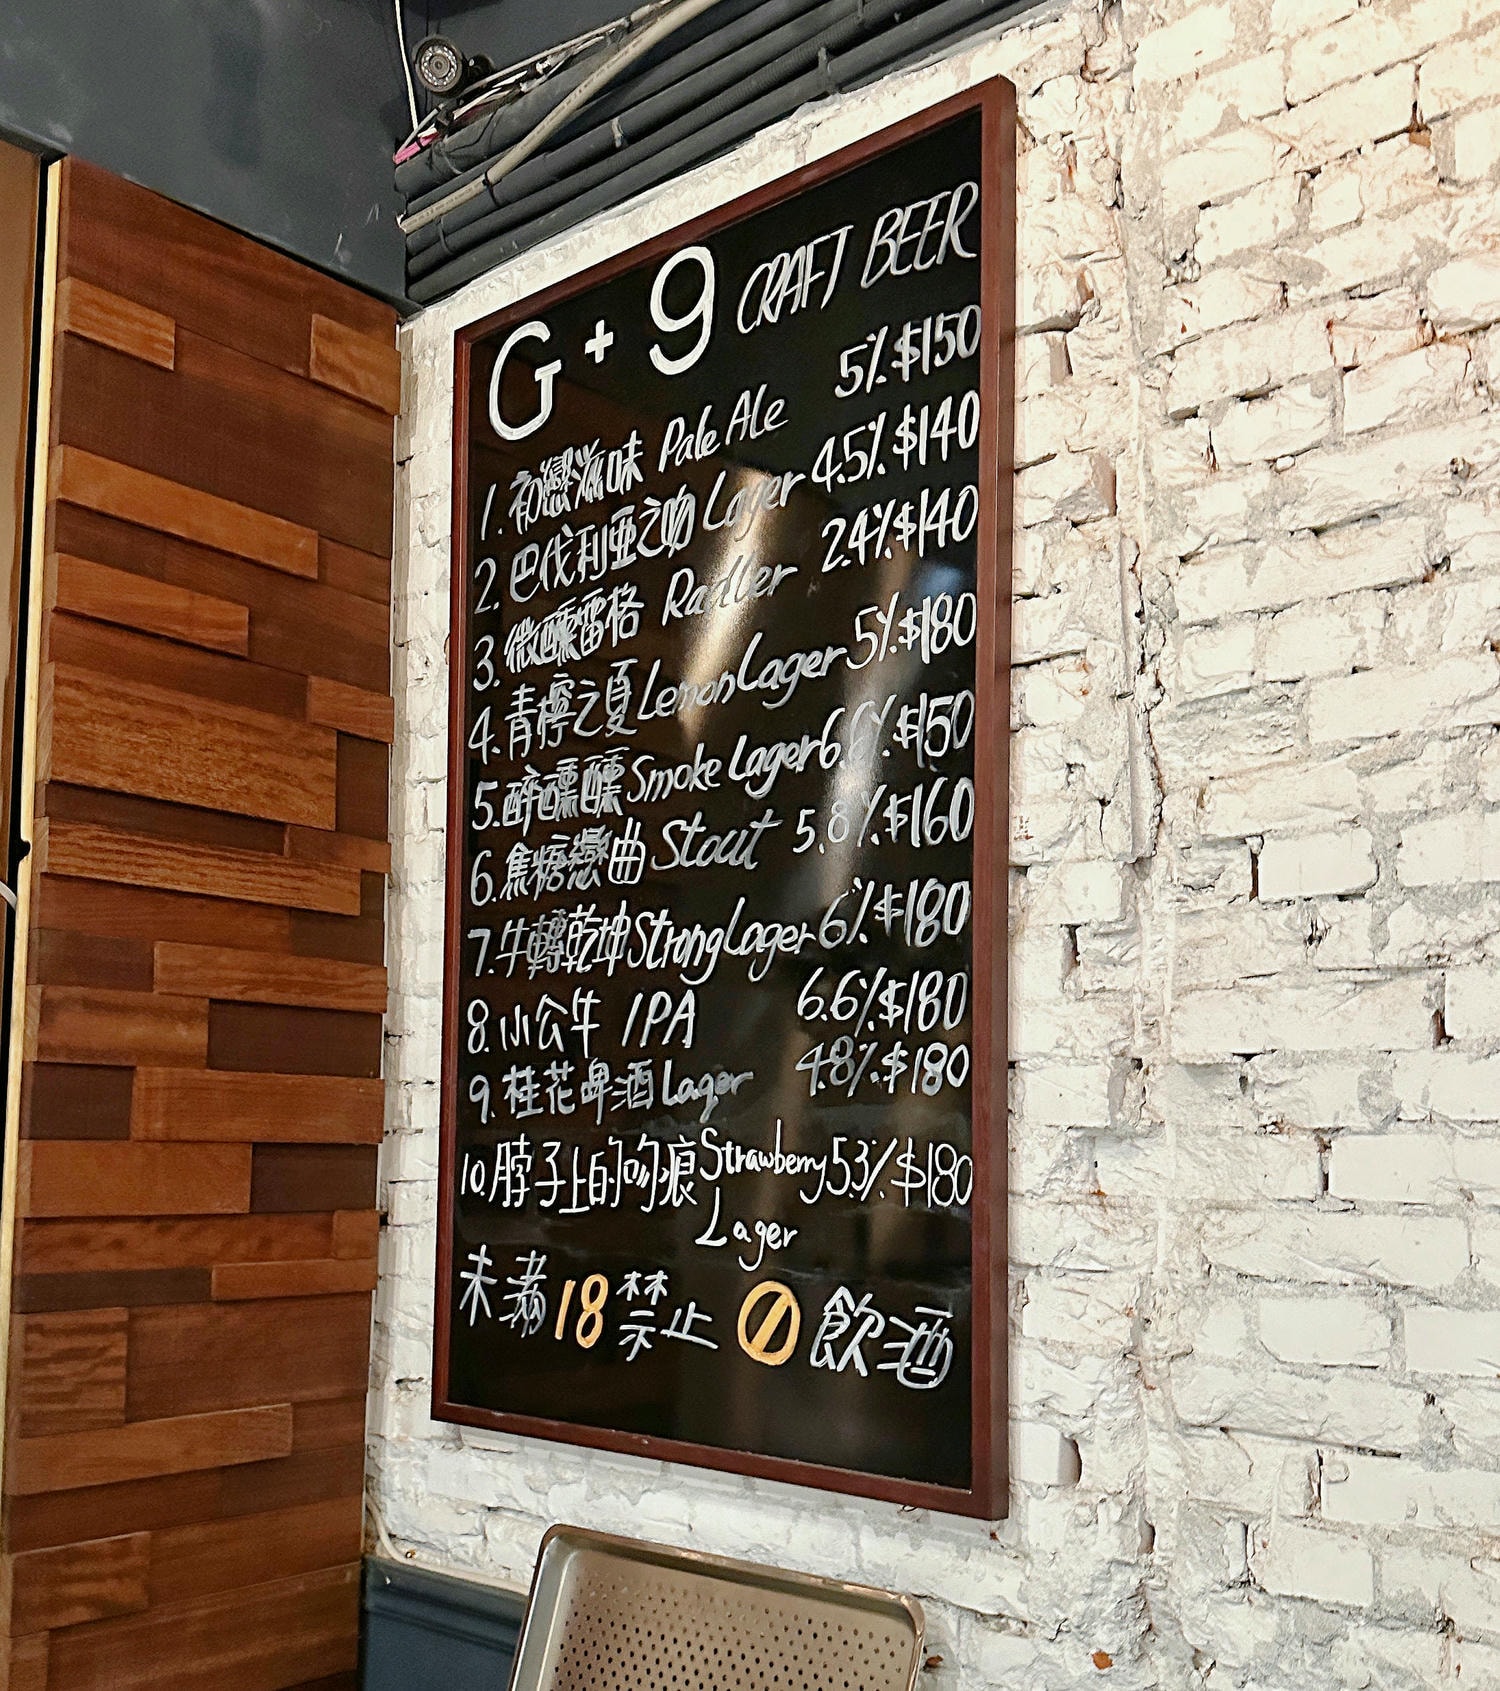 G+9 CRAFT BEER
1. 初戀滋味 Pale Ale 5% $150
2. 巴伐利亞之吻 Lager 4.5% $140
3. 微醺雷格 Radler 2.4% $140
4. 青檸之夏 Lemon Lager 5% $180
5. 醉醺醺 Smoke Lager 6.6% $150
6. 焦糖戀曲 Stout 5.8% $160
7. 牛轉乾坤 Strong Lager 6% $180
8. 小公牛 IPA 6.6% $180
9. 桂花啤酒 Lager 4.8% $180
10. 脖子上的吻痕 Strawberry 5.3% $180
Lager
未滿18禁止 飲酒